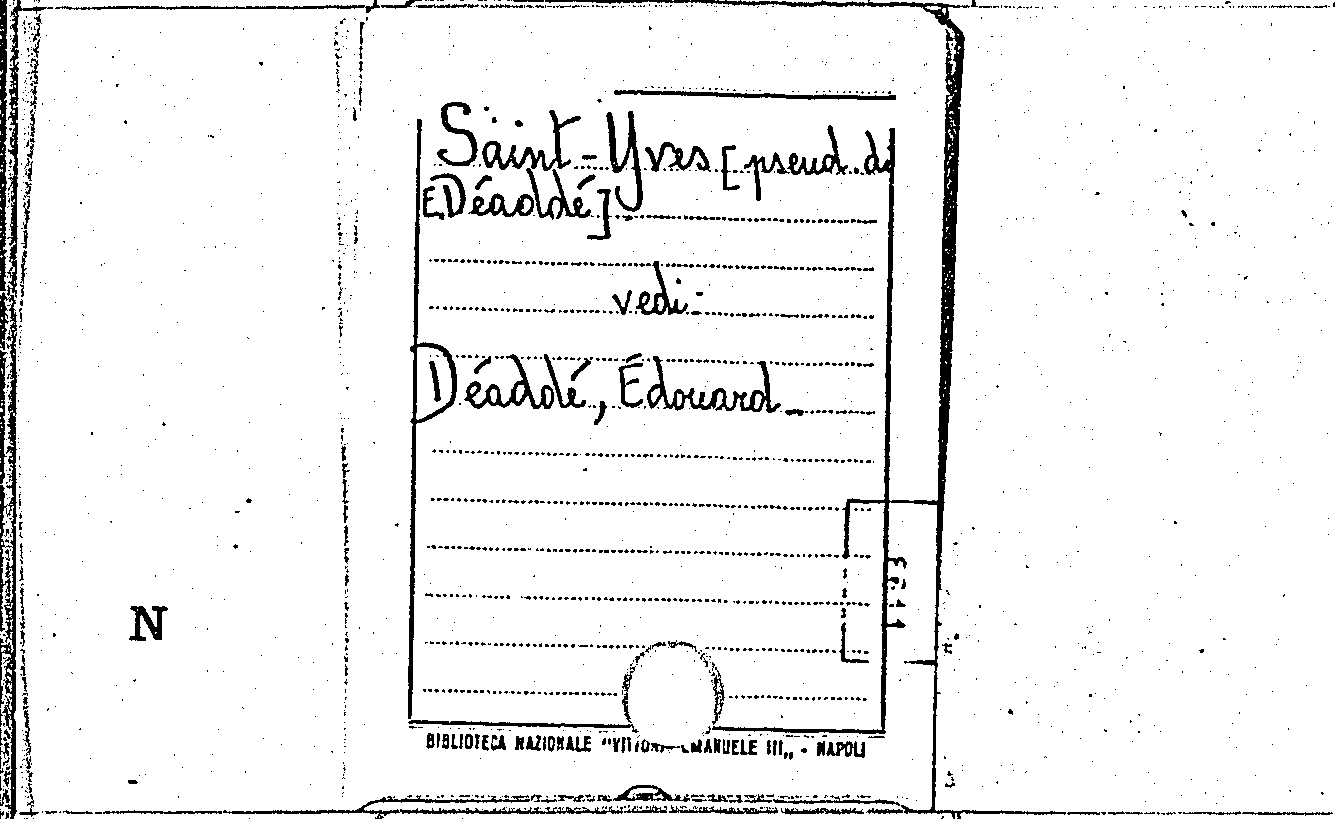 Saint-Yves [pseud. di
E. Déaddé]
vedi:
Déaddé, Édouard_
N
BIBLIOTECA NAZIONALE "VITTORIO EMANUELE III„ - NAPOLI